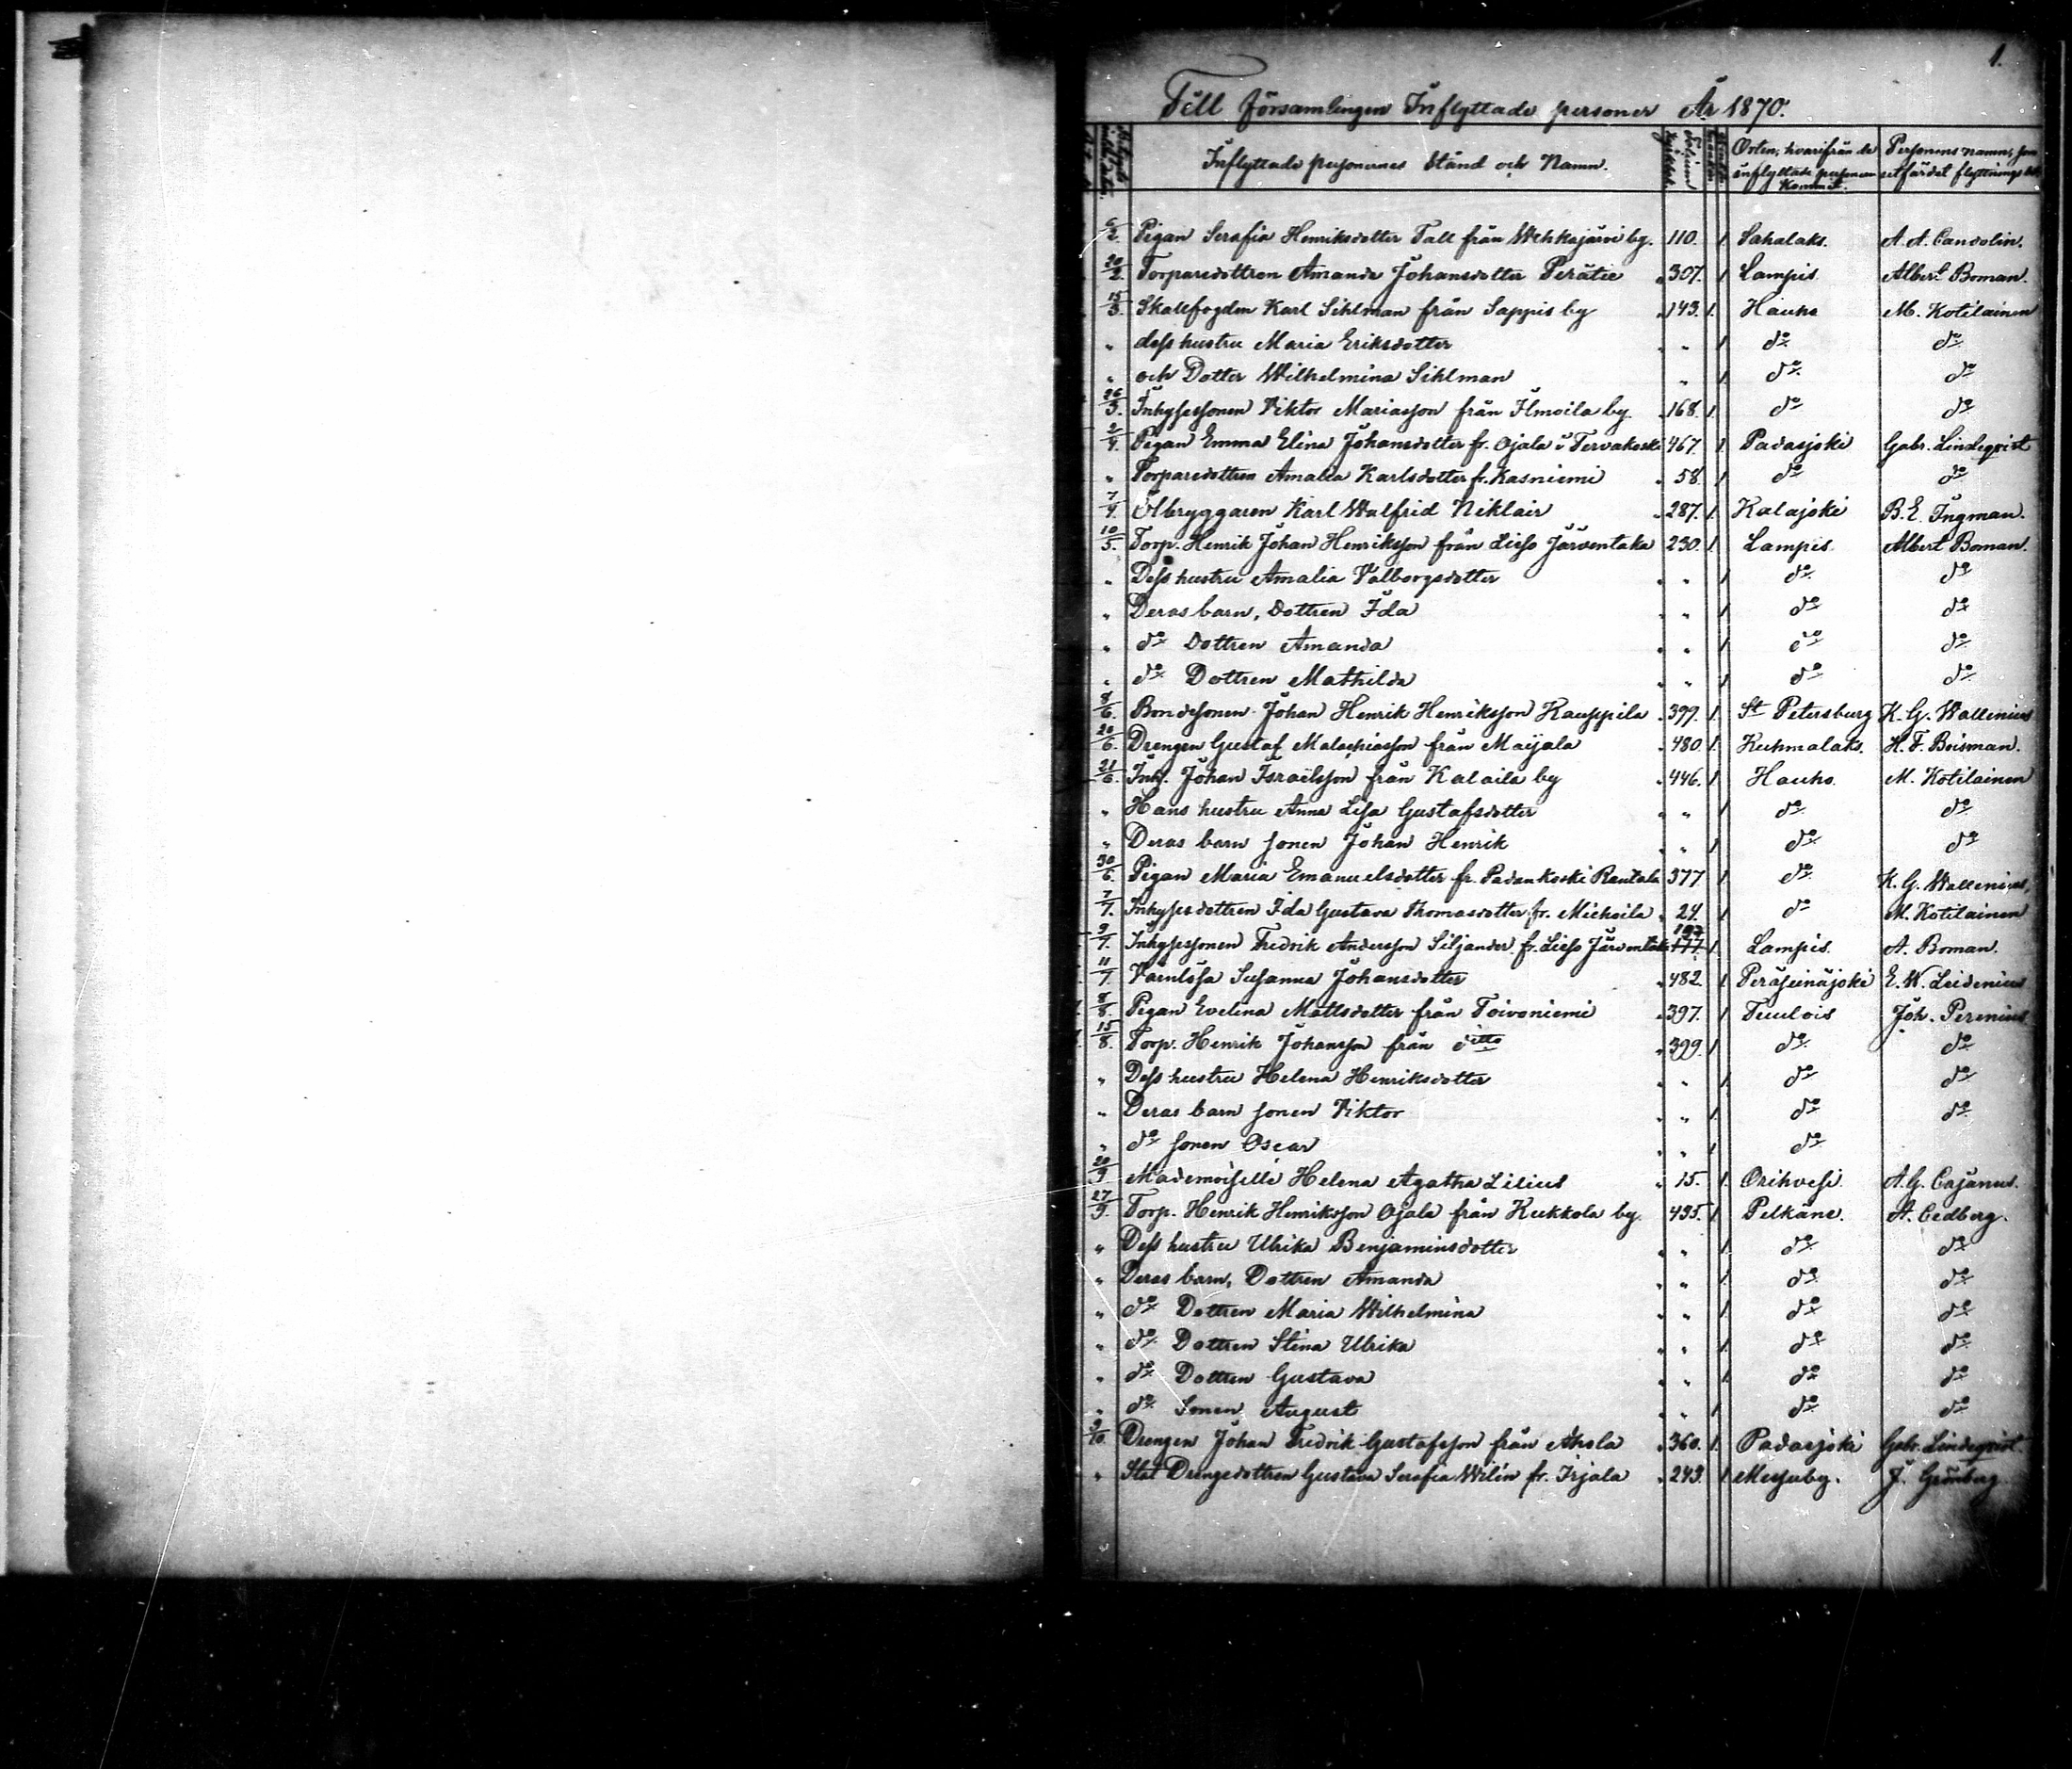 1.
Till Församlingen Inflyttade personer År 1870.
Inflyttade personernes Stånd och Namn. Orten, hvarifrån de Personens namn, som
inflyttade personen utfärdat flyttnings
kommit.
6/2. Pigan Serafia Henriksdotter Tall från Wehkajärvi by. 110. 1. Sahalaks. A. A. Candolin.
20/2. Torparedottren Amanda Johansdotter Perätie " 307. 1 Lampis Albert Boman.
15/3. Skallfogden Karl Sihlman från Sappis by " 143. 1. Hauho M. Kotilainen
" dess hustru Maria Eriksdotter " " 1 do do
" och Dotter Wilhelmina Sihlman " 1. do do
26/3. Inhysessonen Viktor Mariasson från Ilmoila by " 168. 1. do do
2/4. Pigan Emma Elina Johansdotter fr. Ojala i Tervakoski 467. 1. Padasjoki Gabr. Lindeqvist
" Torparedottren Amalia Karlsdotter fr. Kasniemi " 58. 1 do do
7/4. Ölbryggaren Karl Walfrid Niklair " 287. 1. Kalajoki B. E. Ingman.
10/5. Torp. Henrik Johan Henriksson från Lieso Järventaka 230. 1. Lampis. Albert Boman.
" Dess hustru Amalia Valborgsdotter " " 1 do do
" Deras barn, Dottren Ida " " 1 do do
" do Dottren Amanda " " 1 do do
" do Dottren Mathilda " " 1 do do
8/6. Bondesonen Johan Henrik Henriksson Kauppila " 399. 1. St Petersburg K. G. Wallenius
20/6. Drengen Gustaf Malachiasson från Maijala " 480 1. Kuhmalaks. H. F. Boisman.
21/6. Inh. Johan Israelsson från Kalaila by " 446. 1 Hauho. M. Kotilainen
" Hans hustru Anna Lisa Gustafsdotter " " 1 do do
" Deras barn sonen Johan Henrik " " 1 do do
30/6. Pigan Maria Emanuelsdotter fr. Padankoski Rantala 377 1. do K. G. Wallenius,
7/7. Inhysesdottren Ida Gustava Thomasdotter fr. Miehoila " 24. 1 do M. Kotilainen
9/7. Inhysessonen Fredrik Andersson Siljander fr. Lieso Järventaka 177 1. Lampis. A. Boman.
11/7 Susanna Johansdotter " 482. 1. Peräseinäjoki E. W. Leidenius
8/8. Pigan Evelina Mattsdotter från Toivoniemi " 397. 1 Tuulois Joh. Perenius
15/8. Torp. Henrik Johansson från ditto " 399. 1 do do
" Dess hustru Helena Henriksdotter " " 1. do do
" Deras barn sonen Viktor " " 1. do do
" do sonen Oscar " " 1 do
20/9. Mademoiselle Helena Agatha Lilius " 15. 1. Orihvesi. A. G. Cajanus.
27/9. Torp. Henrik Henriksson Ojala från Kukkola by 435. 1 Pelkäne. A. Cedberg.
" Dess hustru Ulrika Benjaminsdotter " " 1. do do
" Deras barn, Dottren Amanda " " 1. do do
" do Dottren Maria Wilhelmina " " 1. do do
" do Dottren Stina Ulrika " " 1. do do
" do Dottren Gustava " " 1 do do
" do Sonen August " " 1 do do
9/10. Drengen Johan Fredrik Gustafsson från Ahola " 360. 1. Padasjoki Gabr. Lindeqvist
" Stat Drengedottren Gustava Serafia Wilin fr. Irjala " 243. 1 Messuby. J. Grönberg